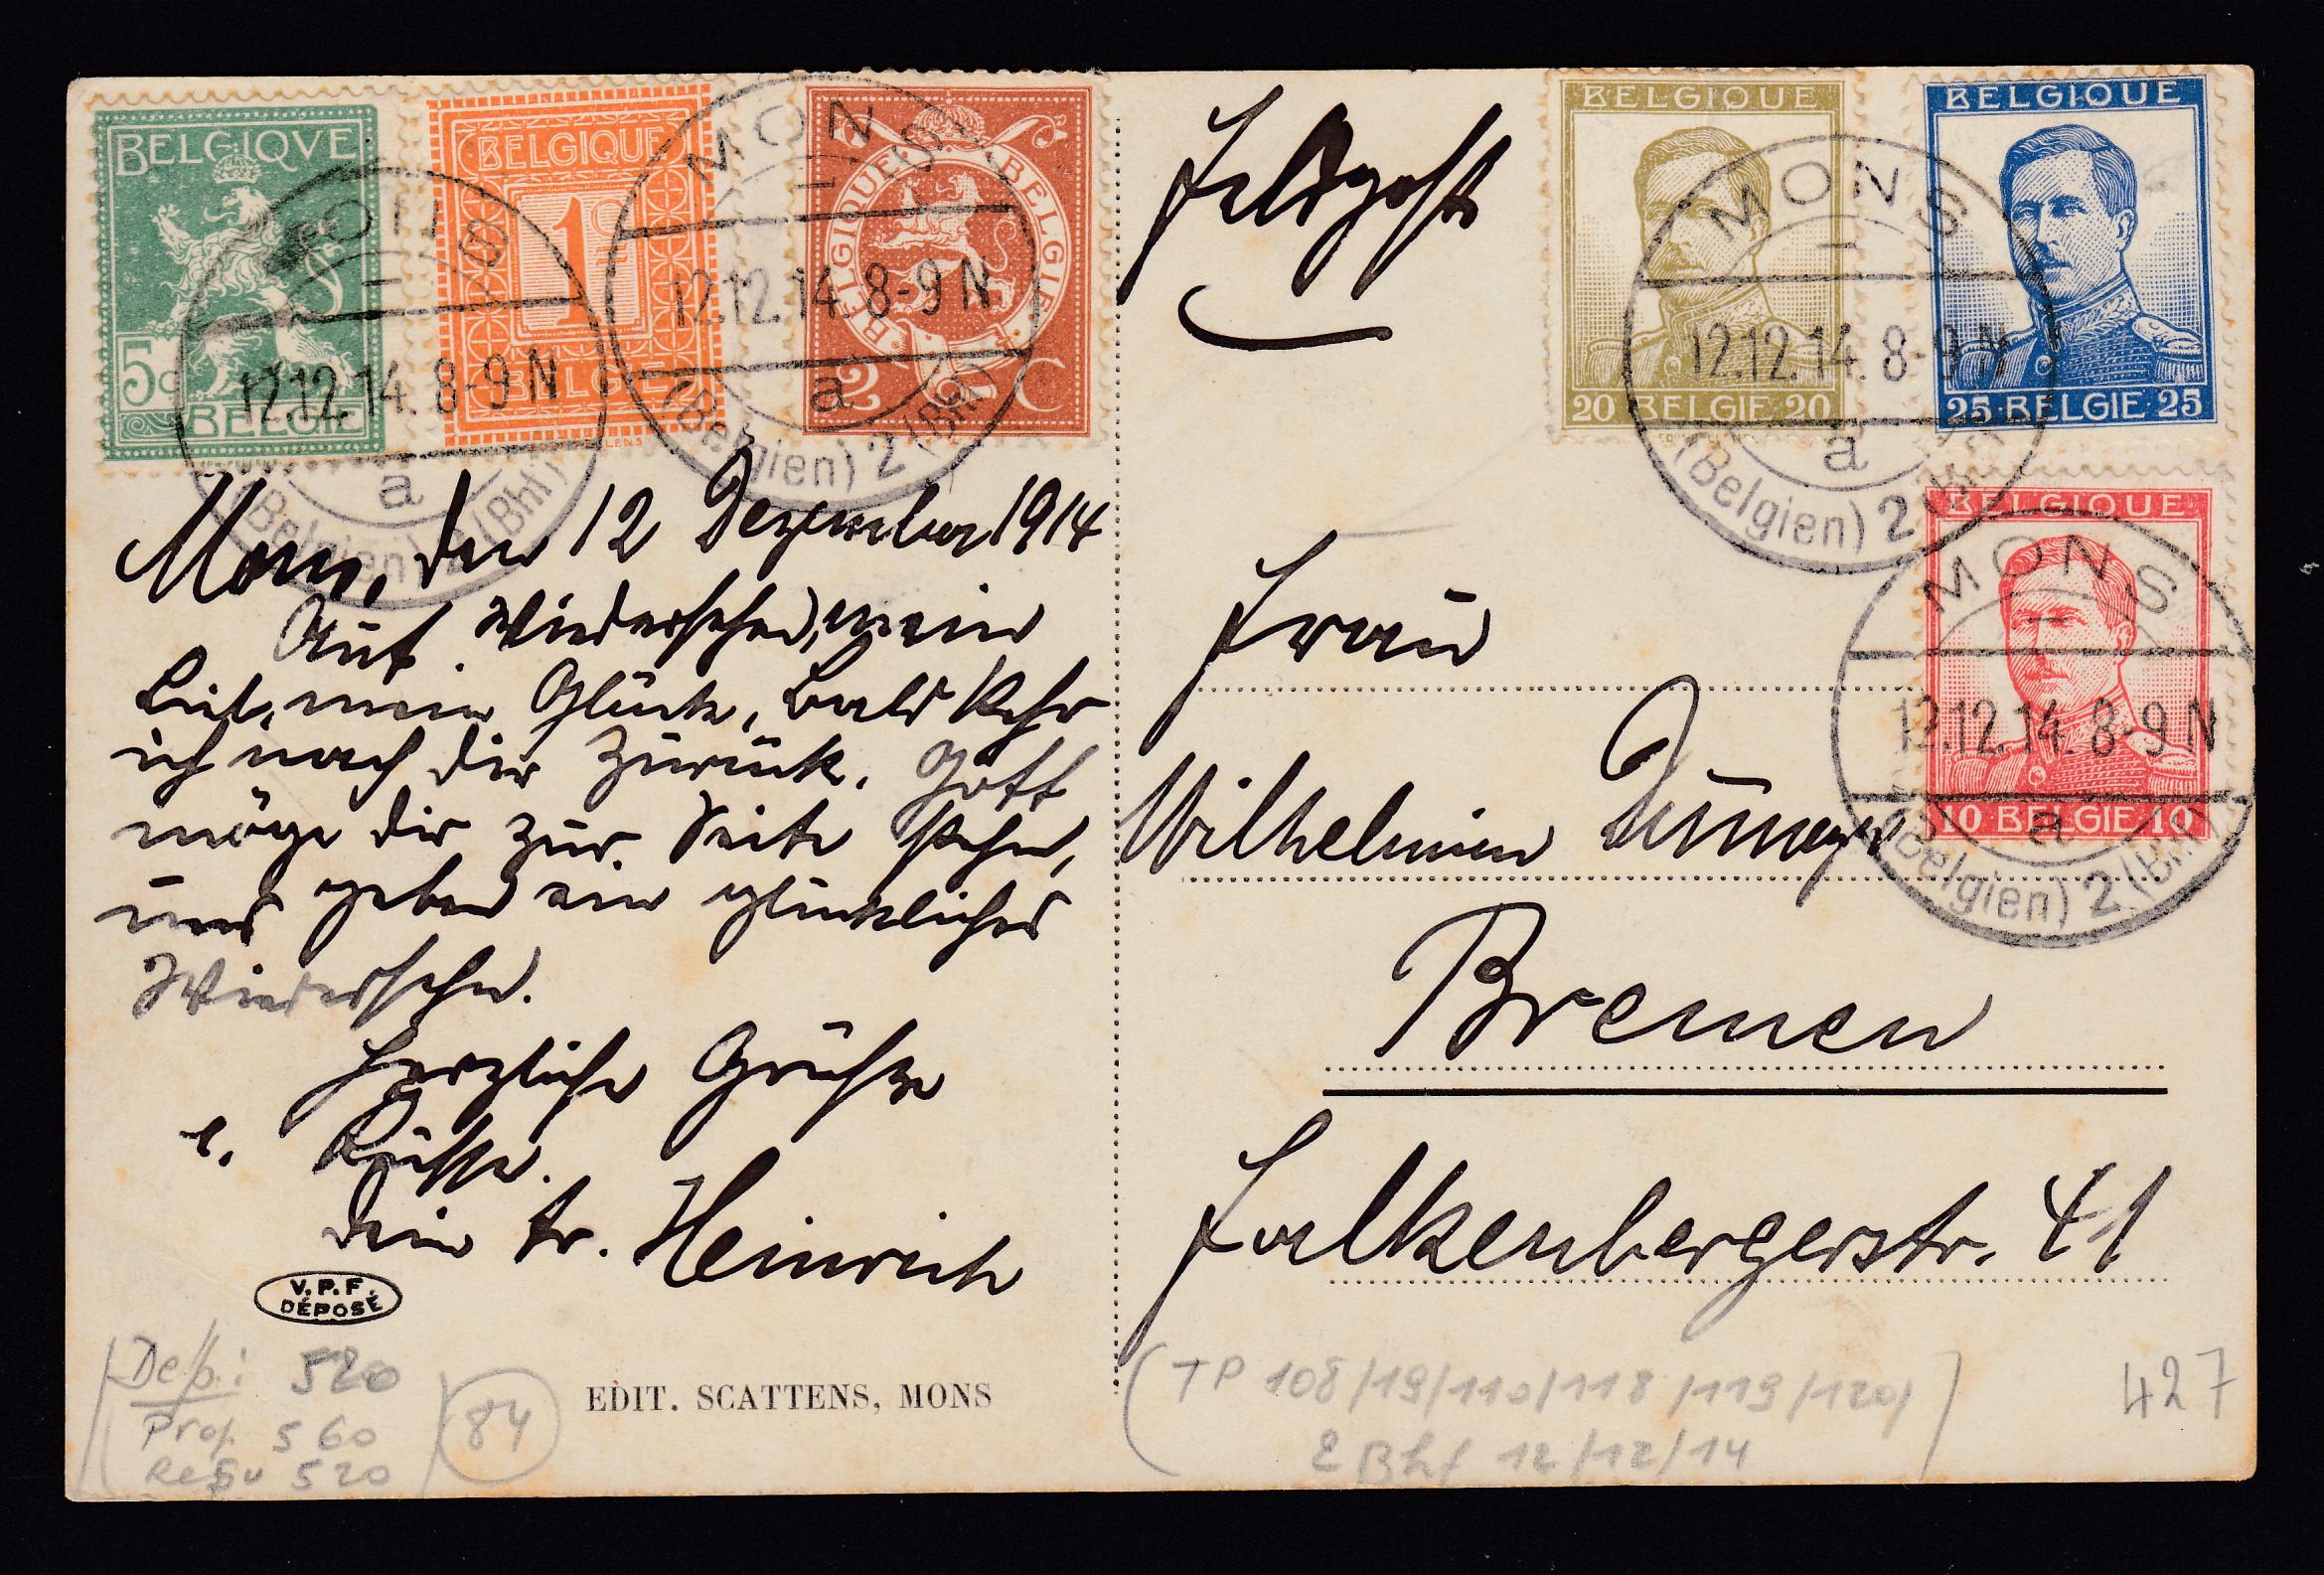 BELGIQUE
5c
BELGIE
BELGIQUE
1c
BELGIE
BELGIQUE · BELGIE
2 C
MONS
12.12.14. 8-9 N
a
(Belgien) 2 (Bhf)
MONS
12.12.14. 8-9 N
a
(Belgien) 2 (Bhf)
Mons, den 12 Dezember 1914
Auf Wiedersehen, mein
Lieb, mein Glück, bald kehr
ich nach dir zurück. Gott
möge dir zur Seite stehn,
und geben ein glückliches
Wiedersehn.
Herzliche Grüße
u. Küsse.
dein tr. Heinrich
V.P.F.
DÉPOSÉ
Deß: 520
Prof. 560
Resu 520
84
EDIT. SCATTENS, MONS
Feldpost
BELGIQUE
20 BELGIE 20
BELGIQUE
25 · BELGIE · 25
MONS
12.12.14. 8-9 N
a
(Belgien) 2 (Bhf)
BELGIQUE
10 · BELGIE · 10
MONS
12.12.14. 8-9 N
a
(Belgien) 2 (Bhf)
Frau
Wilhelmine
Bremen
Falkenbergerstr. 41
(TP 108/19/110/118/119/120/
2 Bhf 12/12/14)
427